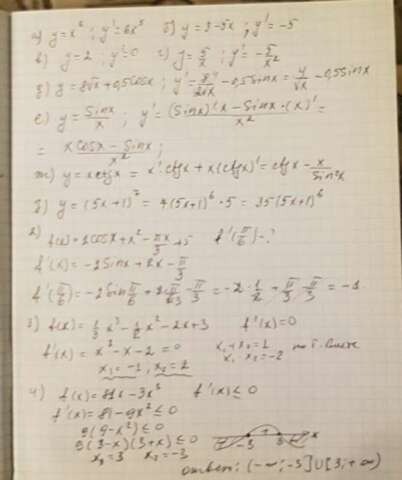 а) y = x⁶ ; y' = 6x⁵ б) y = 3 - 5x ; y' = -5
в) y = 2 ; y' = 0 г) y = 5/x ; y' = -5/x²
д) y = 8√x + 0,5cosx ; y' = 8/2√x - 0,5sinx = 4/√x - 0,5sinx
е) y = sinx/x ; y' = ((sinx)'x - sinx·(x)')/x² =
= (x cosx - sinx)/x² ;
ж) y = x ctgx = x'·ctgx + x(ctgx)' = ctgx - x/sin²x
з) y = (5x+1)⁷ = 7(5x+1)⁶·5 = 35(5x+1)⁶
2) f(x) = 2cosx + x² - πx/3 + 5 f'(π/6) - ?
f'(x) = -2sinx + 2x - π/3
f'(π/6) = -2sin π/6 + 2π/63 - π/3 = -2·1/2 + π/3 - π/3 = -1.
3) f(x) = 1/3 x³ - 1/2 x² - 2x + 3 f'(x) = 0
f'(x) = x² - x - 2 = 0 x₁ + x₂ = 1 по т. Виета
x₁·x₂ = -2
x₁ = -1, x₂ = 2
4) f(x) = 81x - 3x³ f'(x) ≤ 0
f'(x) = 81 - 9x² ≤ 0
9(9 - x²) ≤ 0
9(3-x)(3+x) ≤ 0 - + - x
-3 3
x₁ = 3 x₂ = -3
ответ: (-∞; -3]∪[3; +∞)